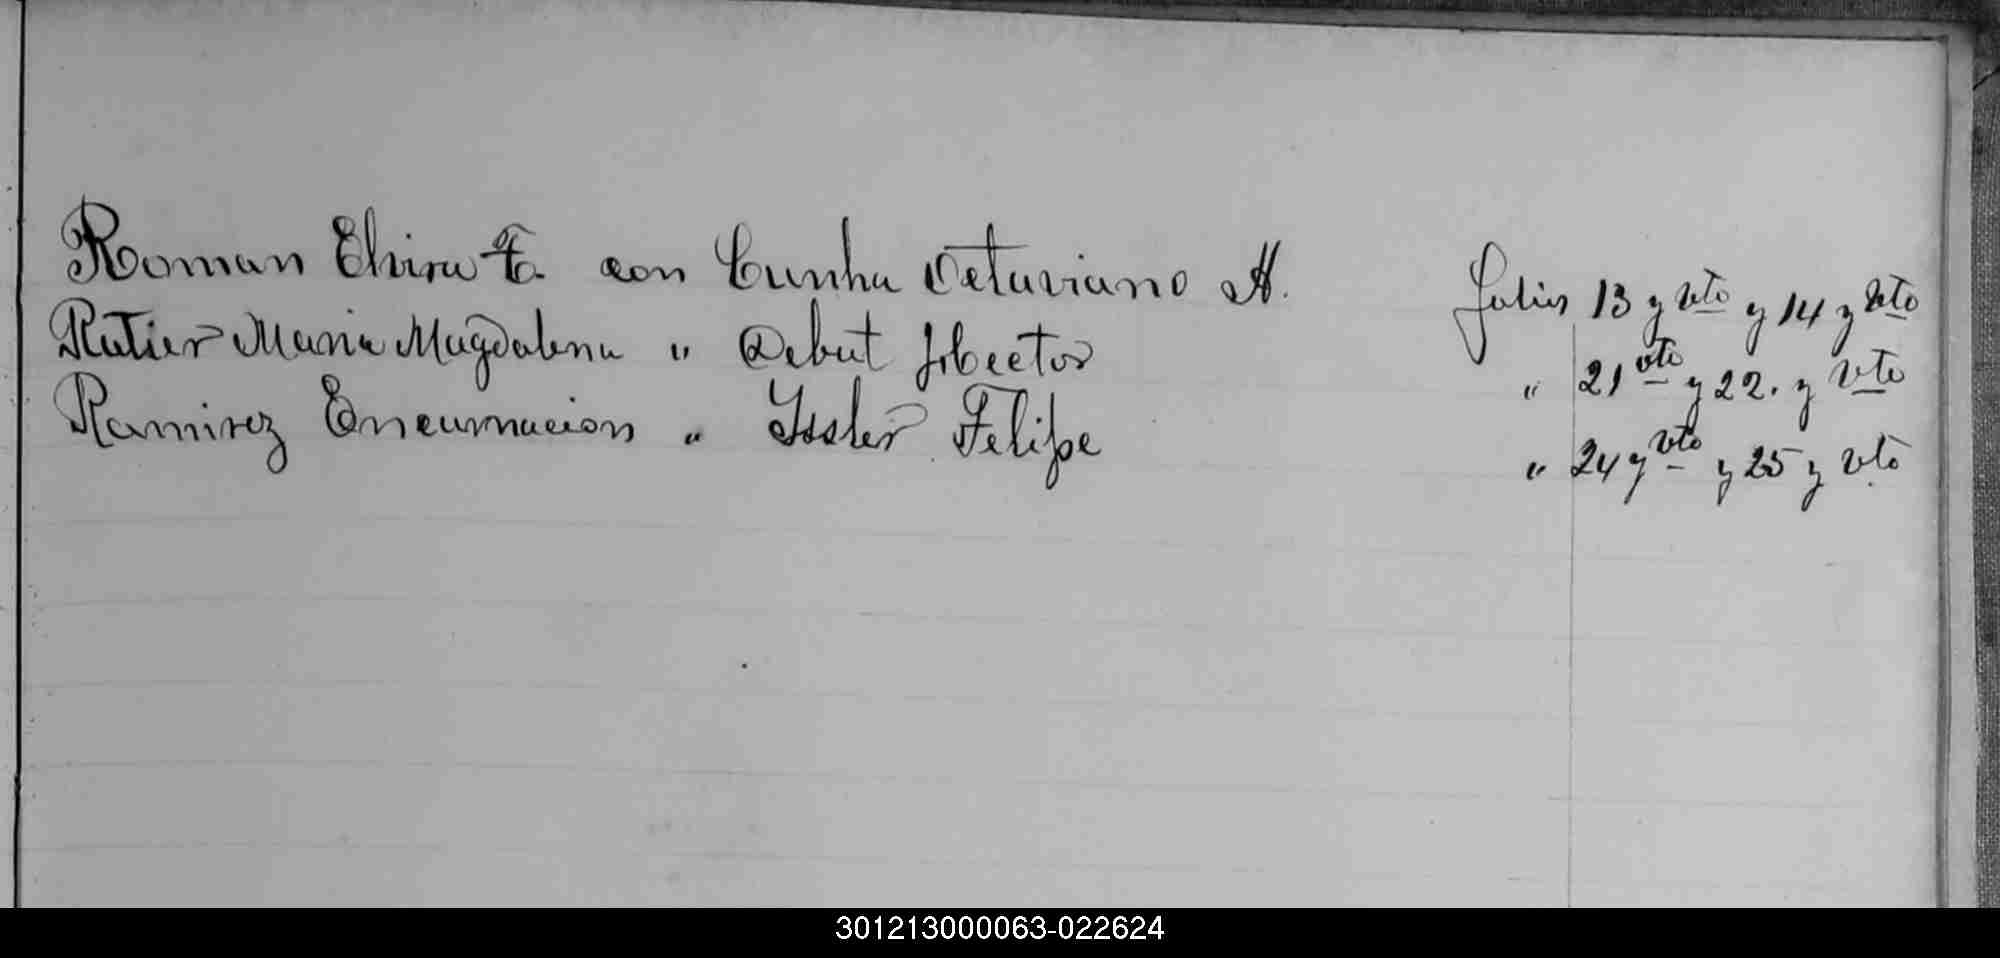 Roman Elvira E. con Cunha Octaviano A. Folios 13 y vto y 14 y vto
Rutier Maria Magdalena " Debut Hector " 21 vto y 22. y vto
Ramirez Encarnacion " Issler Felipe " 24 y vto y 25 y vto
301213000063-022624